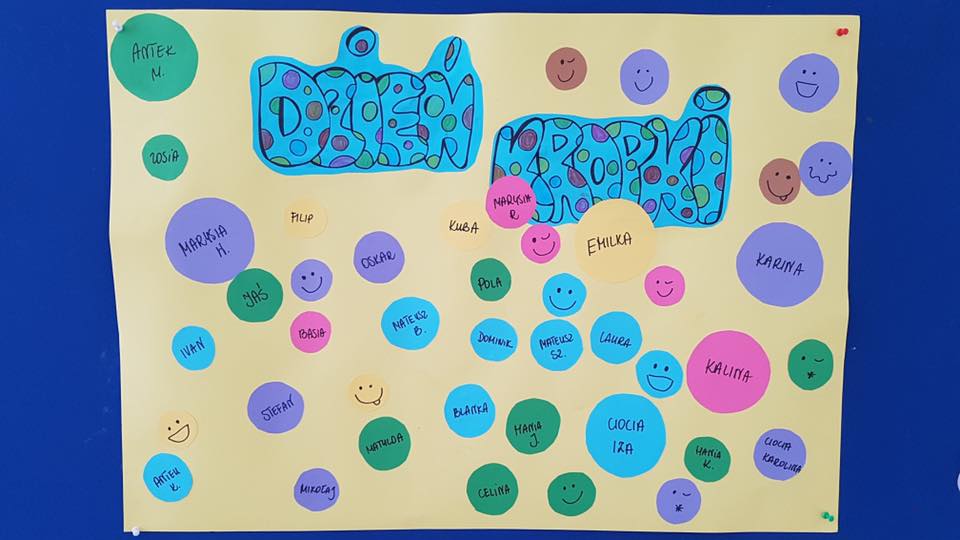 ANTEK
M.
DZIEŃ
KROPKI
ZOSIA
MARYSIA
R
MARYSIA
M.
FILIP
KUBA
EMILKA
OSKAR
KARINA
JAŚ
POLA
BASIA
MATEUSZ
B.
IVAN
DOMINIK
MATEUSZ
SZ.
LAURA
KALINA
STEFAN
BLANKA
HANIA
J.
MATYLDA
CIOCIA
IZA
HANIA
K.
CIOCIA
KAROLINA
ANTEK
K.
MIKOŁAJ
CELINA